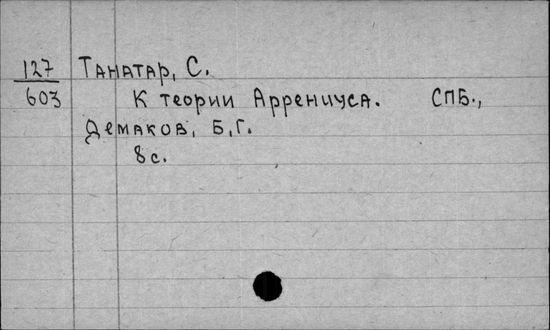 127 Танатар, С.
603 К теории Аррениуса. СПБ.,
Демаков, Б.Г.
8 с.